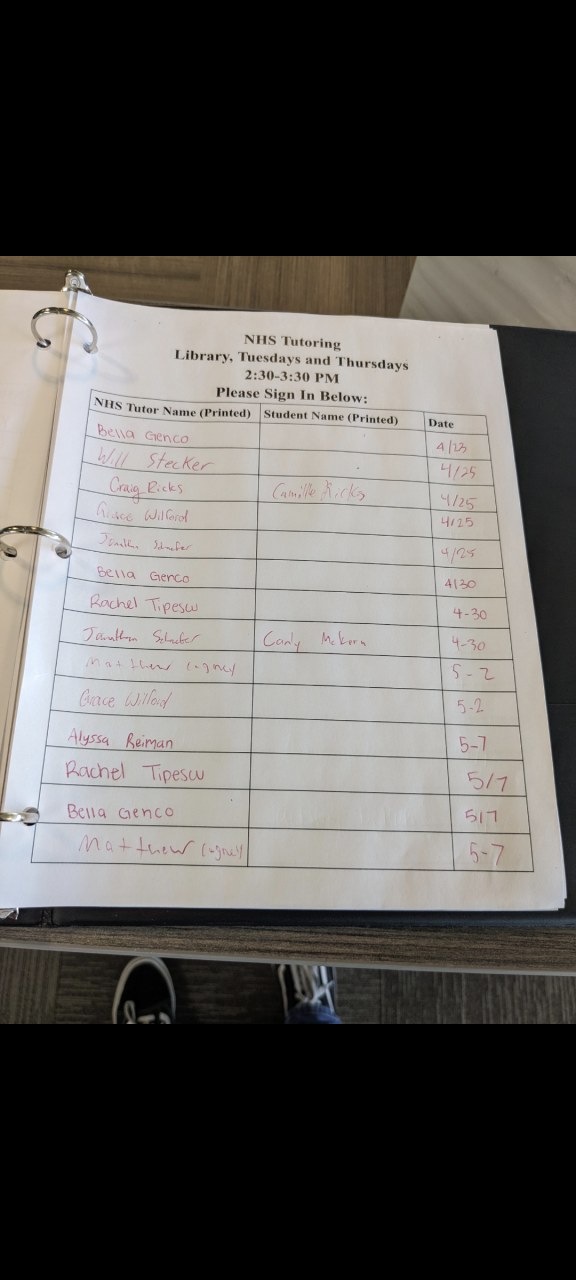 NHS Tutoring
Library, Tuesdays and Thursdays
2:30-3:30 PM
Please Sign In Below:
NHS Tutor Name (Printed) Student Name (Printed) Date
Bella Genco 4/23
Will Stecker 4/25
Craig Ricks Camille Ricks 4/25
Grace Wilford 4/25
4/25
Bella Genco 4/30
Rachel Tipescu 4-30
Jonathan 4-30
Matthew 5-2
Grace Wilford 5-2
Alyssa Reiman 5-7
Rachel Tipescu 5/7
Bella Genco 5/7
Matthew 5-7